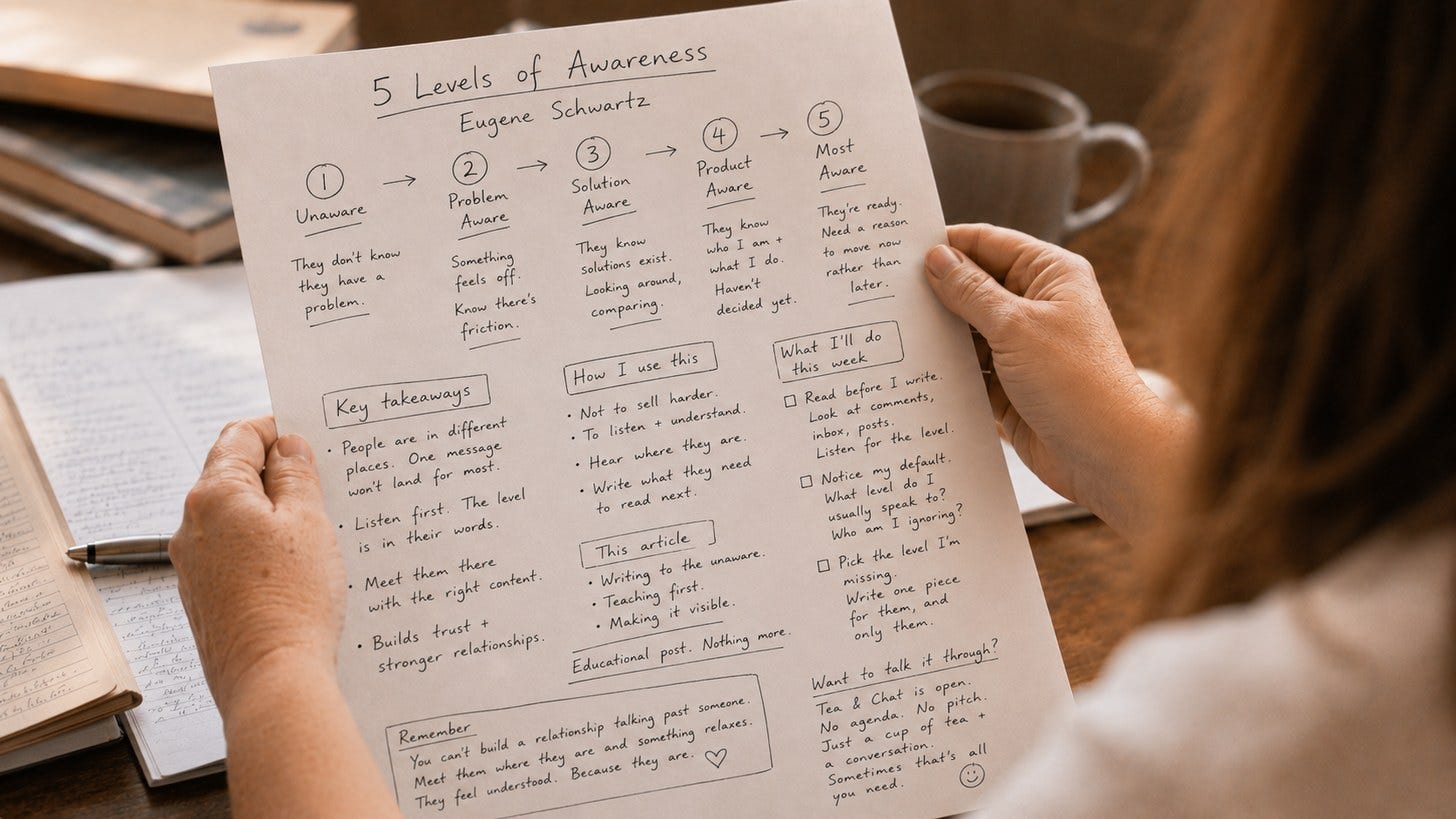 5 Levels of Awareness
Eugene Schwartz
1
Unaware
They don't know
they have a
problem.
2
Problem
Aware
Something
feels off.
Know there's
friction.
3
Solution
Aware
They know
solutions exist.
Looking around,
comparing.
4
Product
Aware
They know
who I am +
what I do.
Haven't
decided yet.
5
Most
Aware
They're ready.
Need a reason
to move now
rather than
later.
Key takeaways
• People are in different
places. One message
won't land for most.
• Listen first. The level
is in their words.
• Meet them there
with the right content.
• Builds trust +
stronger relationships.
How I use this
• Not to sell harder.
• To listen + understand.
• Hear where they are.
• Write what they need
to read next.
This article
• Writing to the unaware.
• Teaching first.
• Making it visible.
Educational post. Nothing more.
What I'll do
this week
Read before I write.
Look at comments,
inbox, posts.
Listen for the level.
Notice my default.
What level do I
usually speak to?
Who am I ignoring?
Pick the level I'm
missing.
Write one piece
for them, and
only them.
Want to talk it through?
Tea & Chat is open.
No agenda. No pitch.
Just a cup of tea +
a conversation.
Sometimes that's all
you need.
Remember
You can't build a relationship talking past someone.
Meet them where they are and something relaxes.
They feel understood. Because they are.